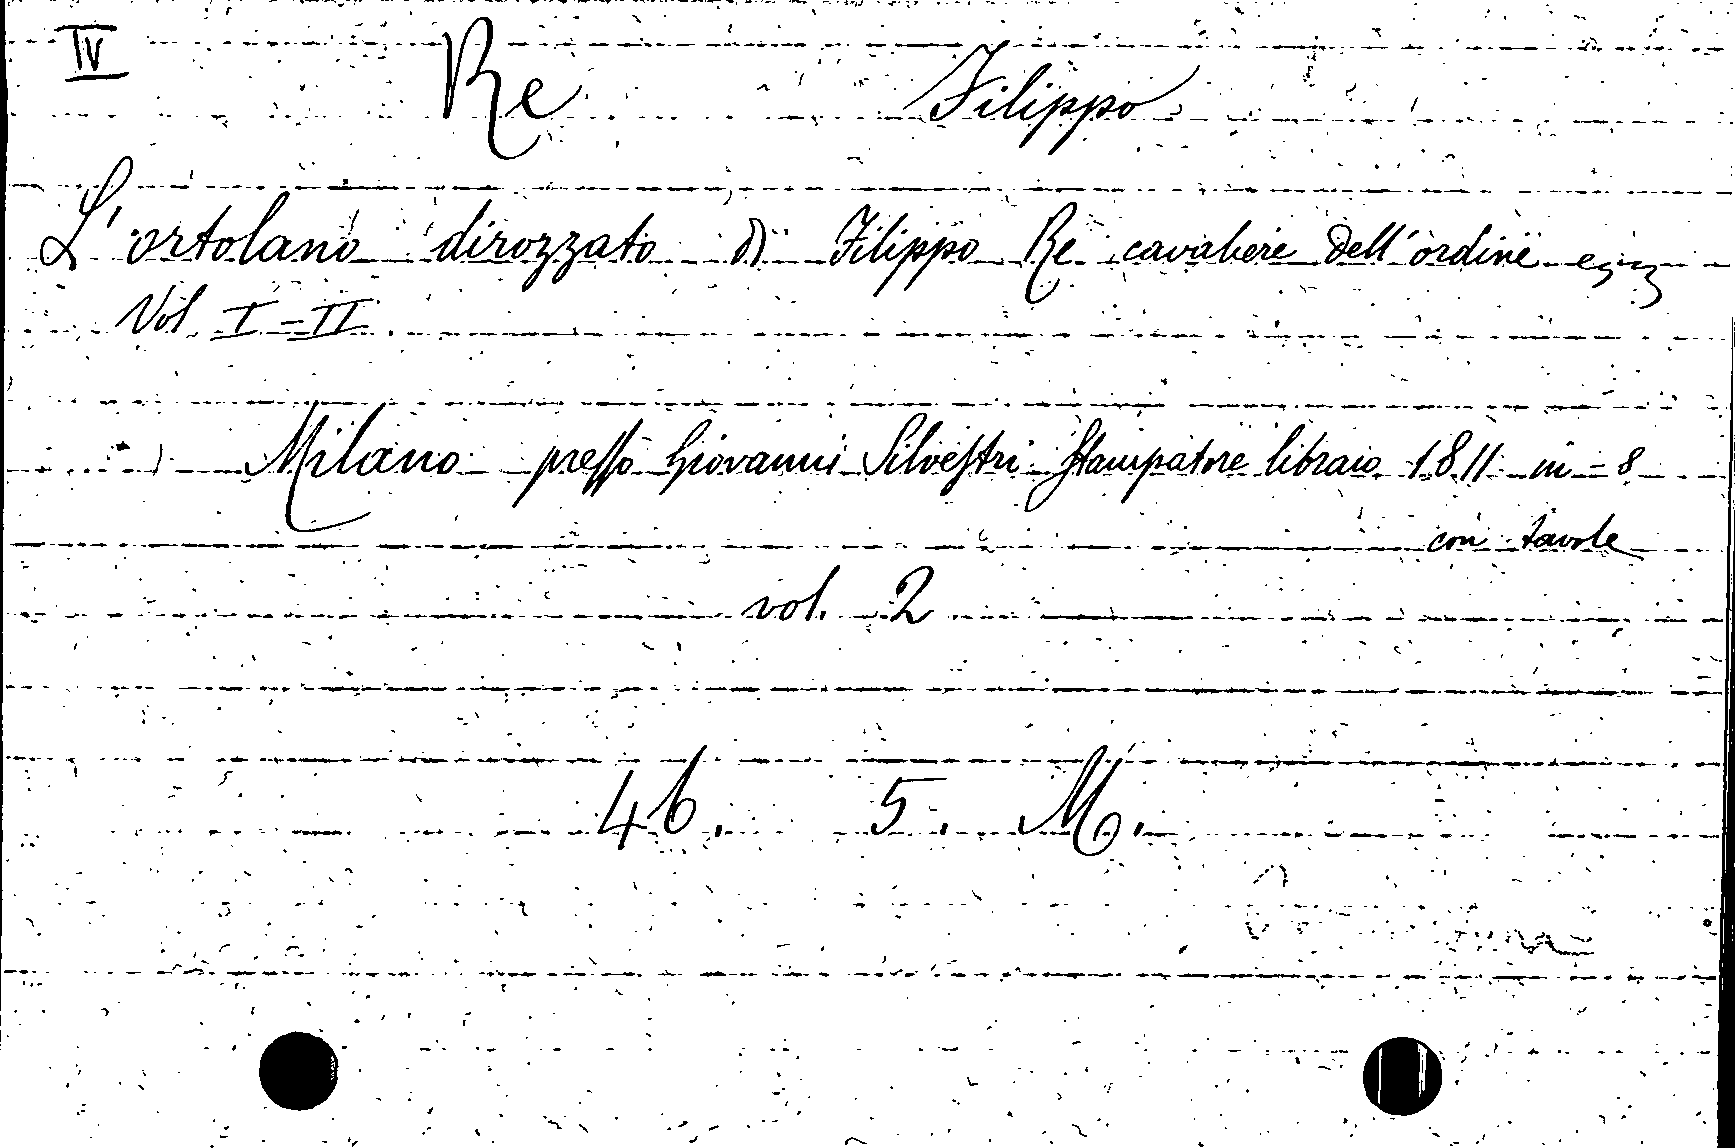 IV
Re Filippo
L'ortolano dirozzato di Filippo Re cavaliere dell'ordine
Vol. I-II
Milano presso Giovanni Silvestri Stampatore libraio 1811 in-8
con tavole
vol. 2
46. 5. M.